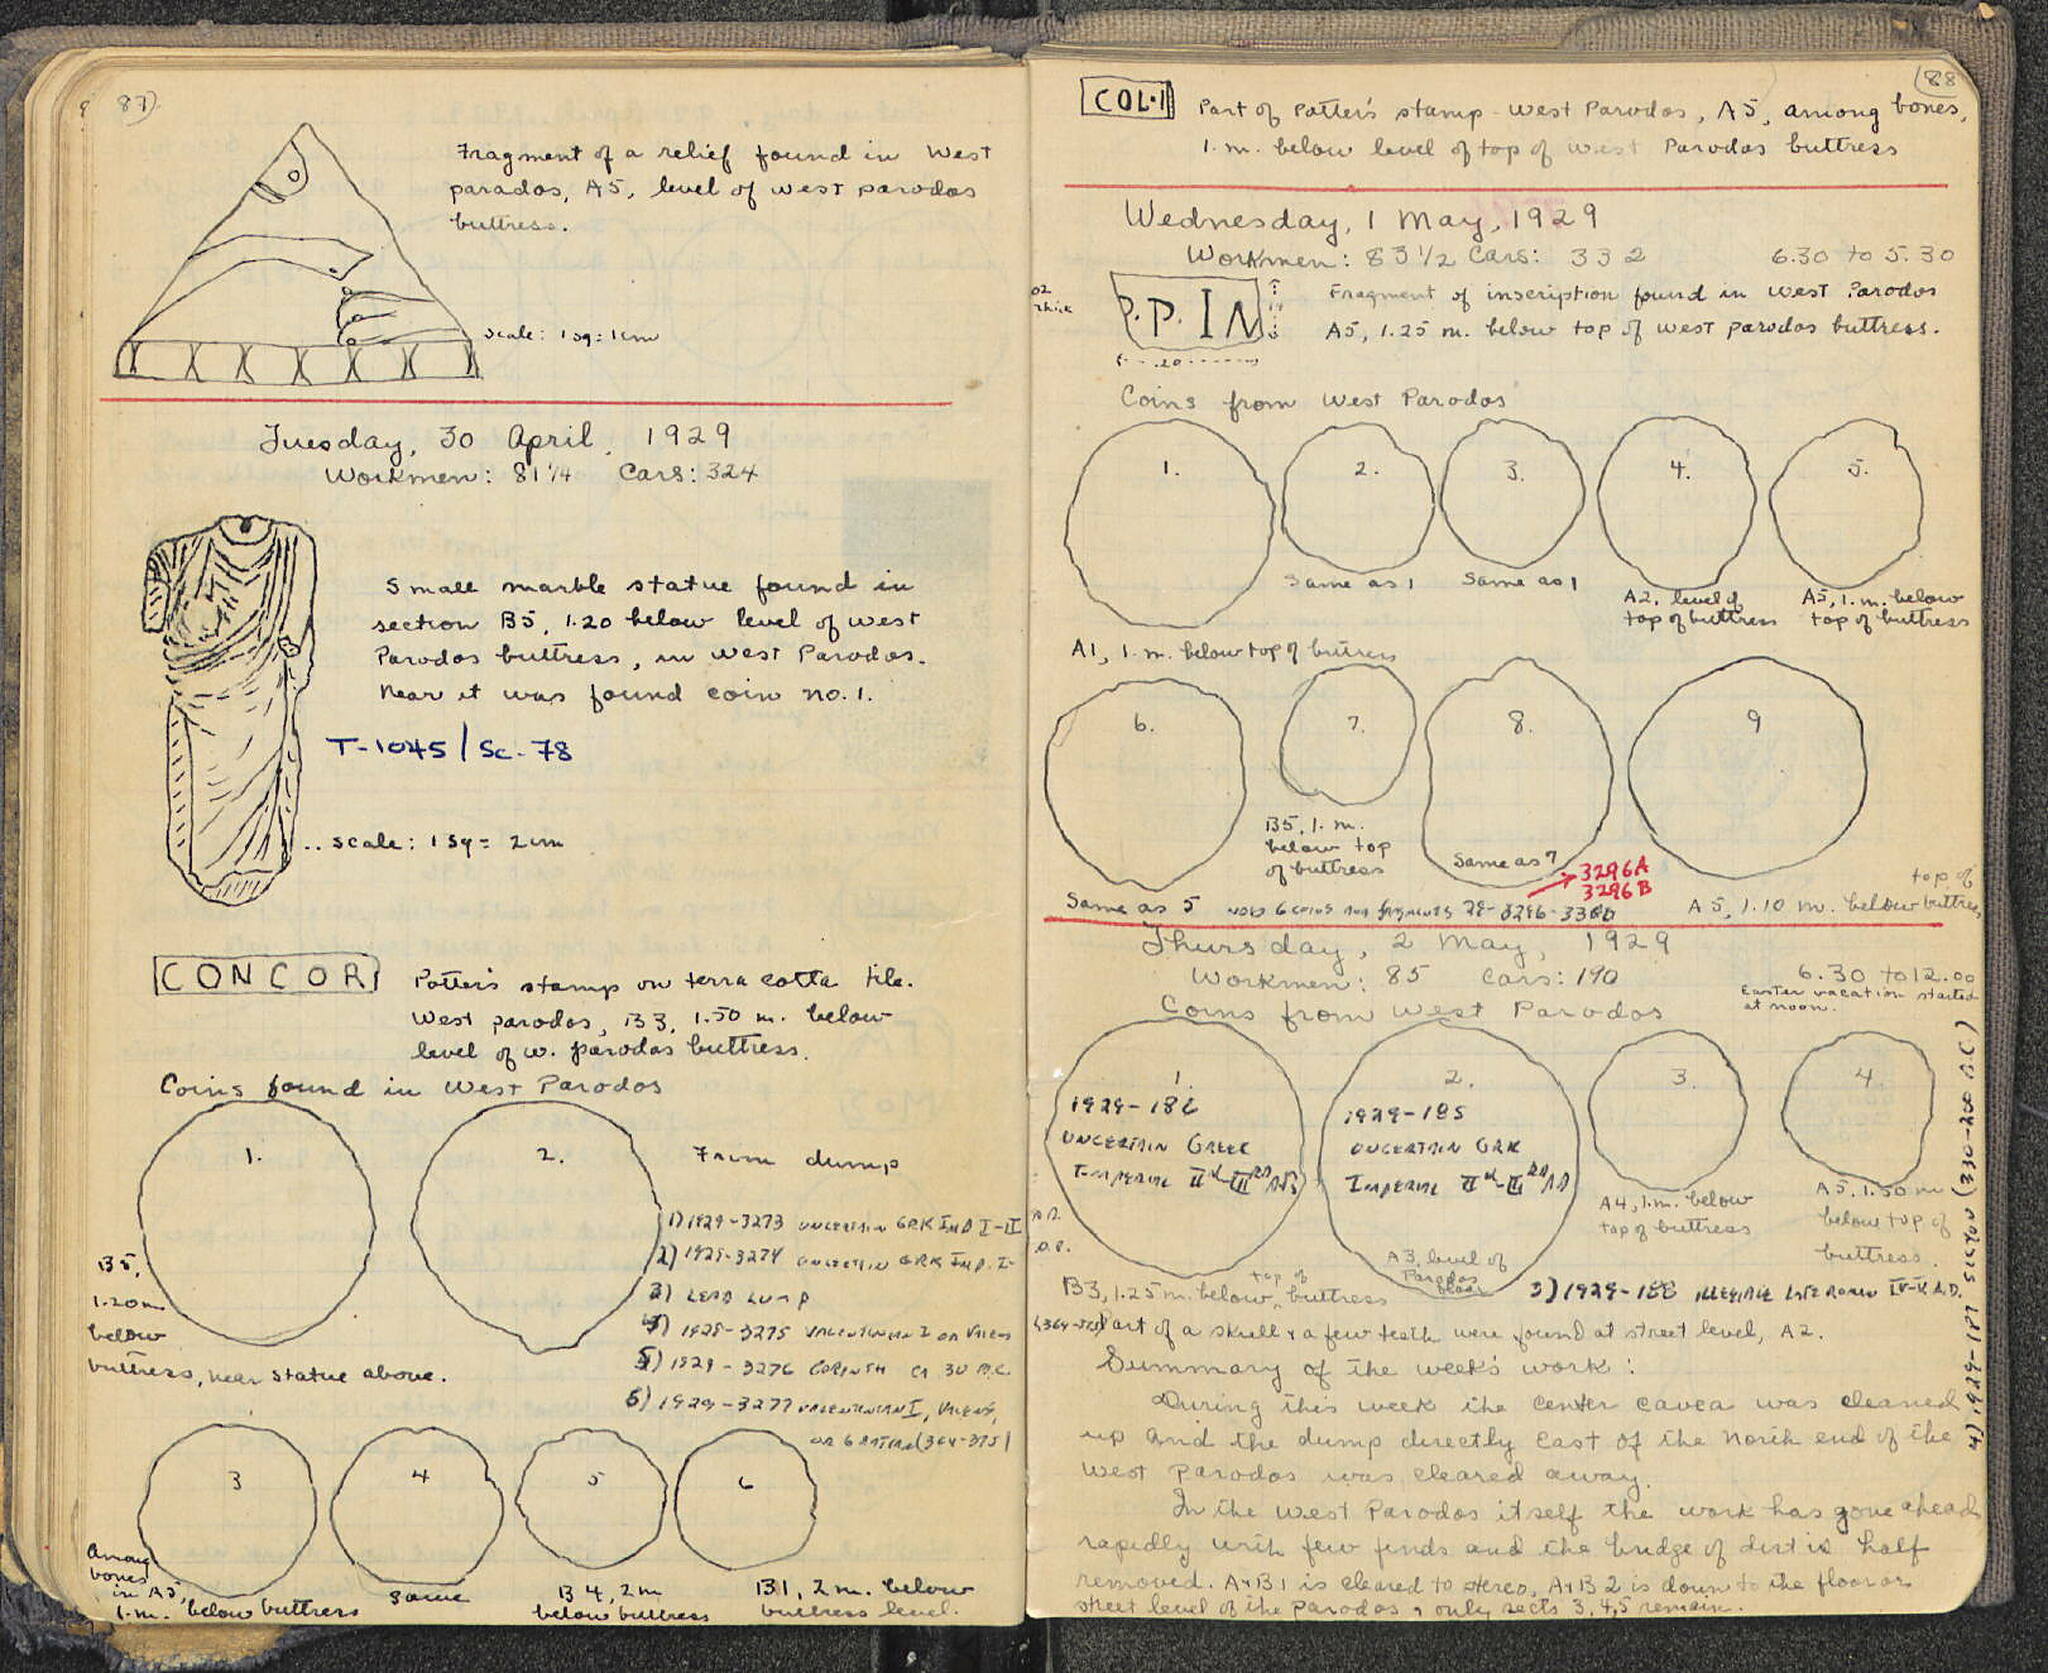 87)
Fragment of a relief found in West
parados, A5, level of west parodos
buttress.
scale: 1 sq = 1cm
Tuesday, 30 April, 1929
Workmen: 81 1/4 Cars: 324
Small marble statue found in
section B5, 1.20 below level of west
Parodos buttress, in West Parodos.
Near it was found coin no. 1.
T-1045 / Sc-78
.. scale: 1 sq = 2cm
CONCOR
Potter's stamp on terra cotta tile.
West parodos, B3, 1.50 m. below
level of w. parodos buttress.
Coins found in West Parodos
1.
2.
From dump
B5,
1.20m
below
buttress, near statue above.
1) 1929-3273 UNCERTAIN GRK IMP I-II
2) 1929-3274 UNCERTAIN GRK IMP. I-
A.D.
3) LEAD LUMP
4) 1929-3275 VALENTINIAN I OR VALENS
(364-375)
5) 1929-3276 CORINTH CA 30 B.C.
6) 1929-3277 VALENTINIAN I, VALENS,
OR GRATIAN (364-375)
3
4
5
6
Among
bones
in A5,
1.m. below buttress
same
B4, 2m
below buttress
B1, 2m. below
buttress level.
88
COL·I
Part of Potter's stamp - West Parodos, A5, among bones,
1.m. below level of top of west Parodos buttress
Wednesday, 1 May, 1929
Workmen: 83 1/2 Cars: 332 6.30 to 5.30
02
thick
P.P.IN
.20
Fragment of inscription found in West Parodos
A5, 1.25 m. below top of west parodos buttress.
Coins from West Parodos
1.
2.
3.
4.
5.
Same as 1
Same as 1
A2, level of
top of buttress
A5, 1.m. below
top of buttress
A1, 1.m. below top of buttress
6.
7.
8.
9
B5, 1.m.
below top
of buttress
Same as 7
3296A
3296B
Same as 5
now 6 coins and fragments 29-3296-3300
A5, 1.10 m. below top of buttress
Thursday, 2 May, 1929
Workmen: 85 Cars: 190 6.30 to 12.00
Easter vacation started
at noon.
Coins from West Parodos
1.
1929-186
UNCERTAIN GREEK
IMPERIAL II-III AD
2.
1929-185
UNCERTAIN GRK
IMPERIAL II-III AD
3.
4.
A3, level of
Parodos
floor
A4, 1.m. below
top of buttress
A5, 1.50 m
below top of
buttress.
B3, 1.25 m. below top of buttress
3) 1929-188 ILLEGIBLE LATE ROMAN IV-V A.D.
4) 1929-187 SICYON (330-200 B.C.)
Part of a skull & a few teeth were found at street level, A2.
Summary of the week's work:
During this week the center cavea was cleaned
up and the dump directly East of the North end of the
West Parodos was cleared away.
In the West Parodos itself the work has gone ahead
rapidly with few finds and the bridge of dirt is half
removed. A+B1 is cleared to stereo, A+B2 is down to the floor or
street level of the Parodos, & only sects 3, 4, 5 remain.